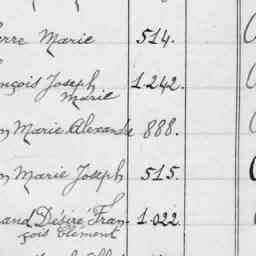 erre Marie 514.
nçois Joseph 1.242.
Marie
n Marie Alexandre 888.
n Marie Joseph 515.
and Désiré Fran- 1.022.
çois Clément